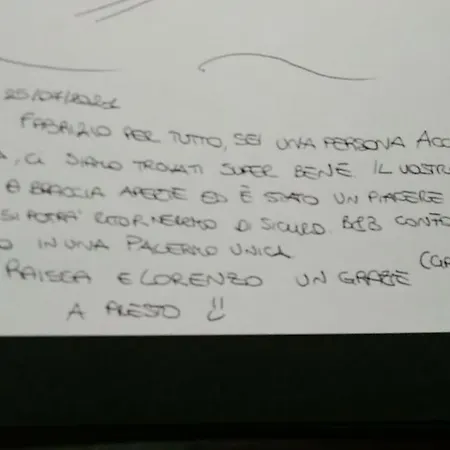 25/07/2021
FABRIZIO PER TUTTO, SEI UNA PERSONA
, CI SIAMO TROVATI SUPER BENE. IL VOSTR
A BRACCIA APERTE ED È STATO UN PIACERE
SI POTRÀ RITORNEREMO DI SICURO. B&B
IN UNA PALERMO UNICA
RAISCA E LORENZO UN GRAZIE
A PRESTO